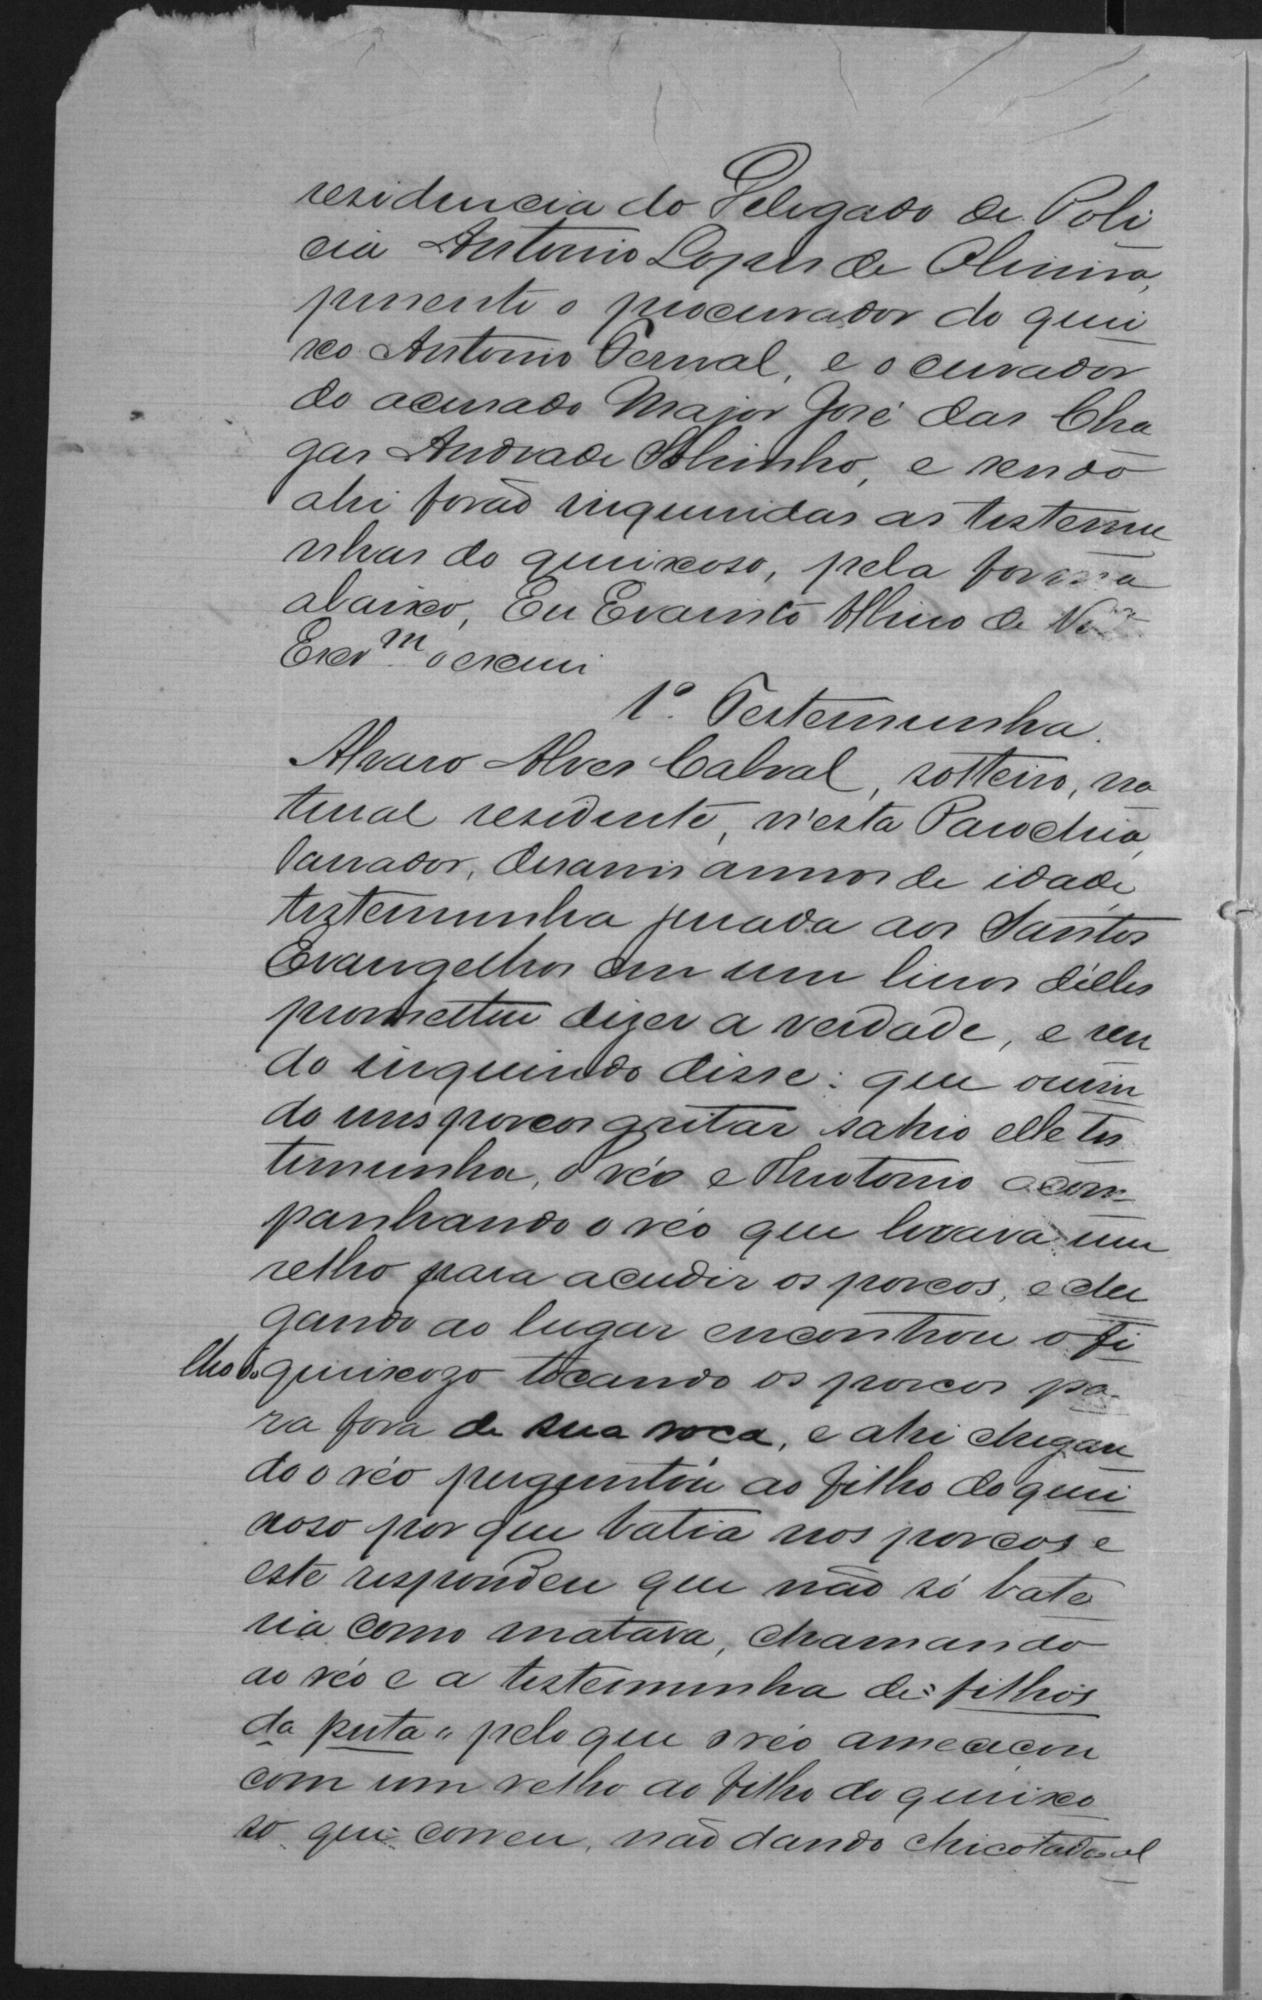 residencia do Delegado de Poli
cia Antonio Lopes de Oliveira,
presente o procurador do quei
xo Antonio Fernal, e o curador
do acusado Major José das Cha
gas Andrade Sobrinho, e sendo
ahi forão inqueridas as testemu
nhas do queixoso, pela forma
abaixo, Eu Evaristo Albino de
Escr.m o escrevi
1ª. Testemunha.
Alvaro Alves Cabral, solteiro, na
tural residente, n'esta Parochia,
lavrador, deseseis annos de idade,
testemunha jurada aos Santos
Evangelhos em um livros d'elles
prometteu dizer a verdade, e sen
do inquerido disse: que ouvin
do uns porcos gritar sahio elle tes
temunha, o réo e Theotonio acom
panhando o réo que levava um
relho para acudir os porcos, e che
gando ao lugar encontrou o fi
lho do queixozo tocando os porcos pa
ra fora de sua roca, e ahi chegan
do o réo perguntou ao filho do quei
xoso por que batia nos porcos e
este respondeu que não só bate
ria como matava, chamando
ao réo e a testemunha de "filhos
da puta" pelo que o réo ameaçou
com um relho ao filho do queixo
so que correu, não dando chicotadas al